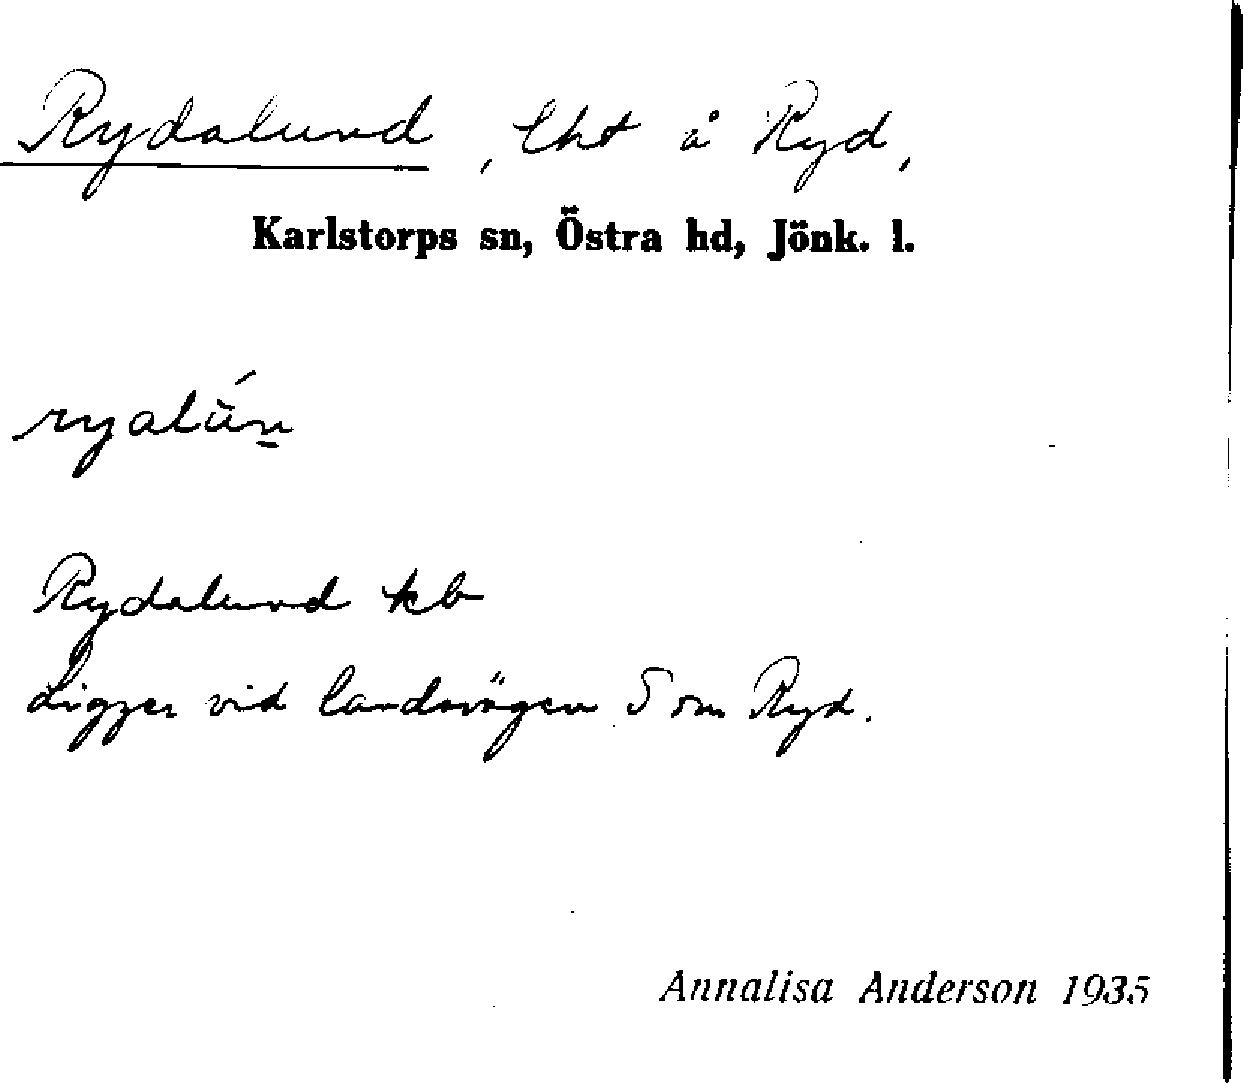 Rydalund, lht å Ryd,
Karlstorps sn, Östra hd, Jönk. l.
ryalún
Rydalund kb
Ligger vid landsvägen S om Ryd.
Annalisa Anderson 1935